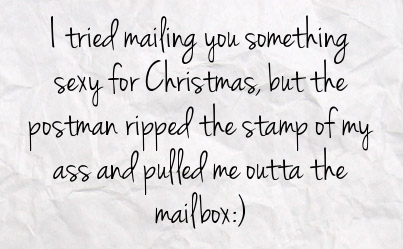 I tried mailing you something
sexy for Christmas, but the
postman ripped the stamp of my
ass and pulled me outta the
mailbox:)